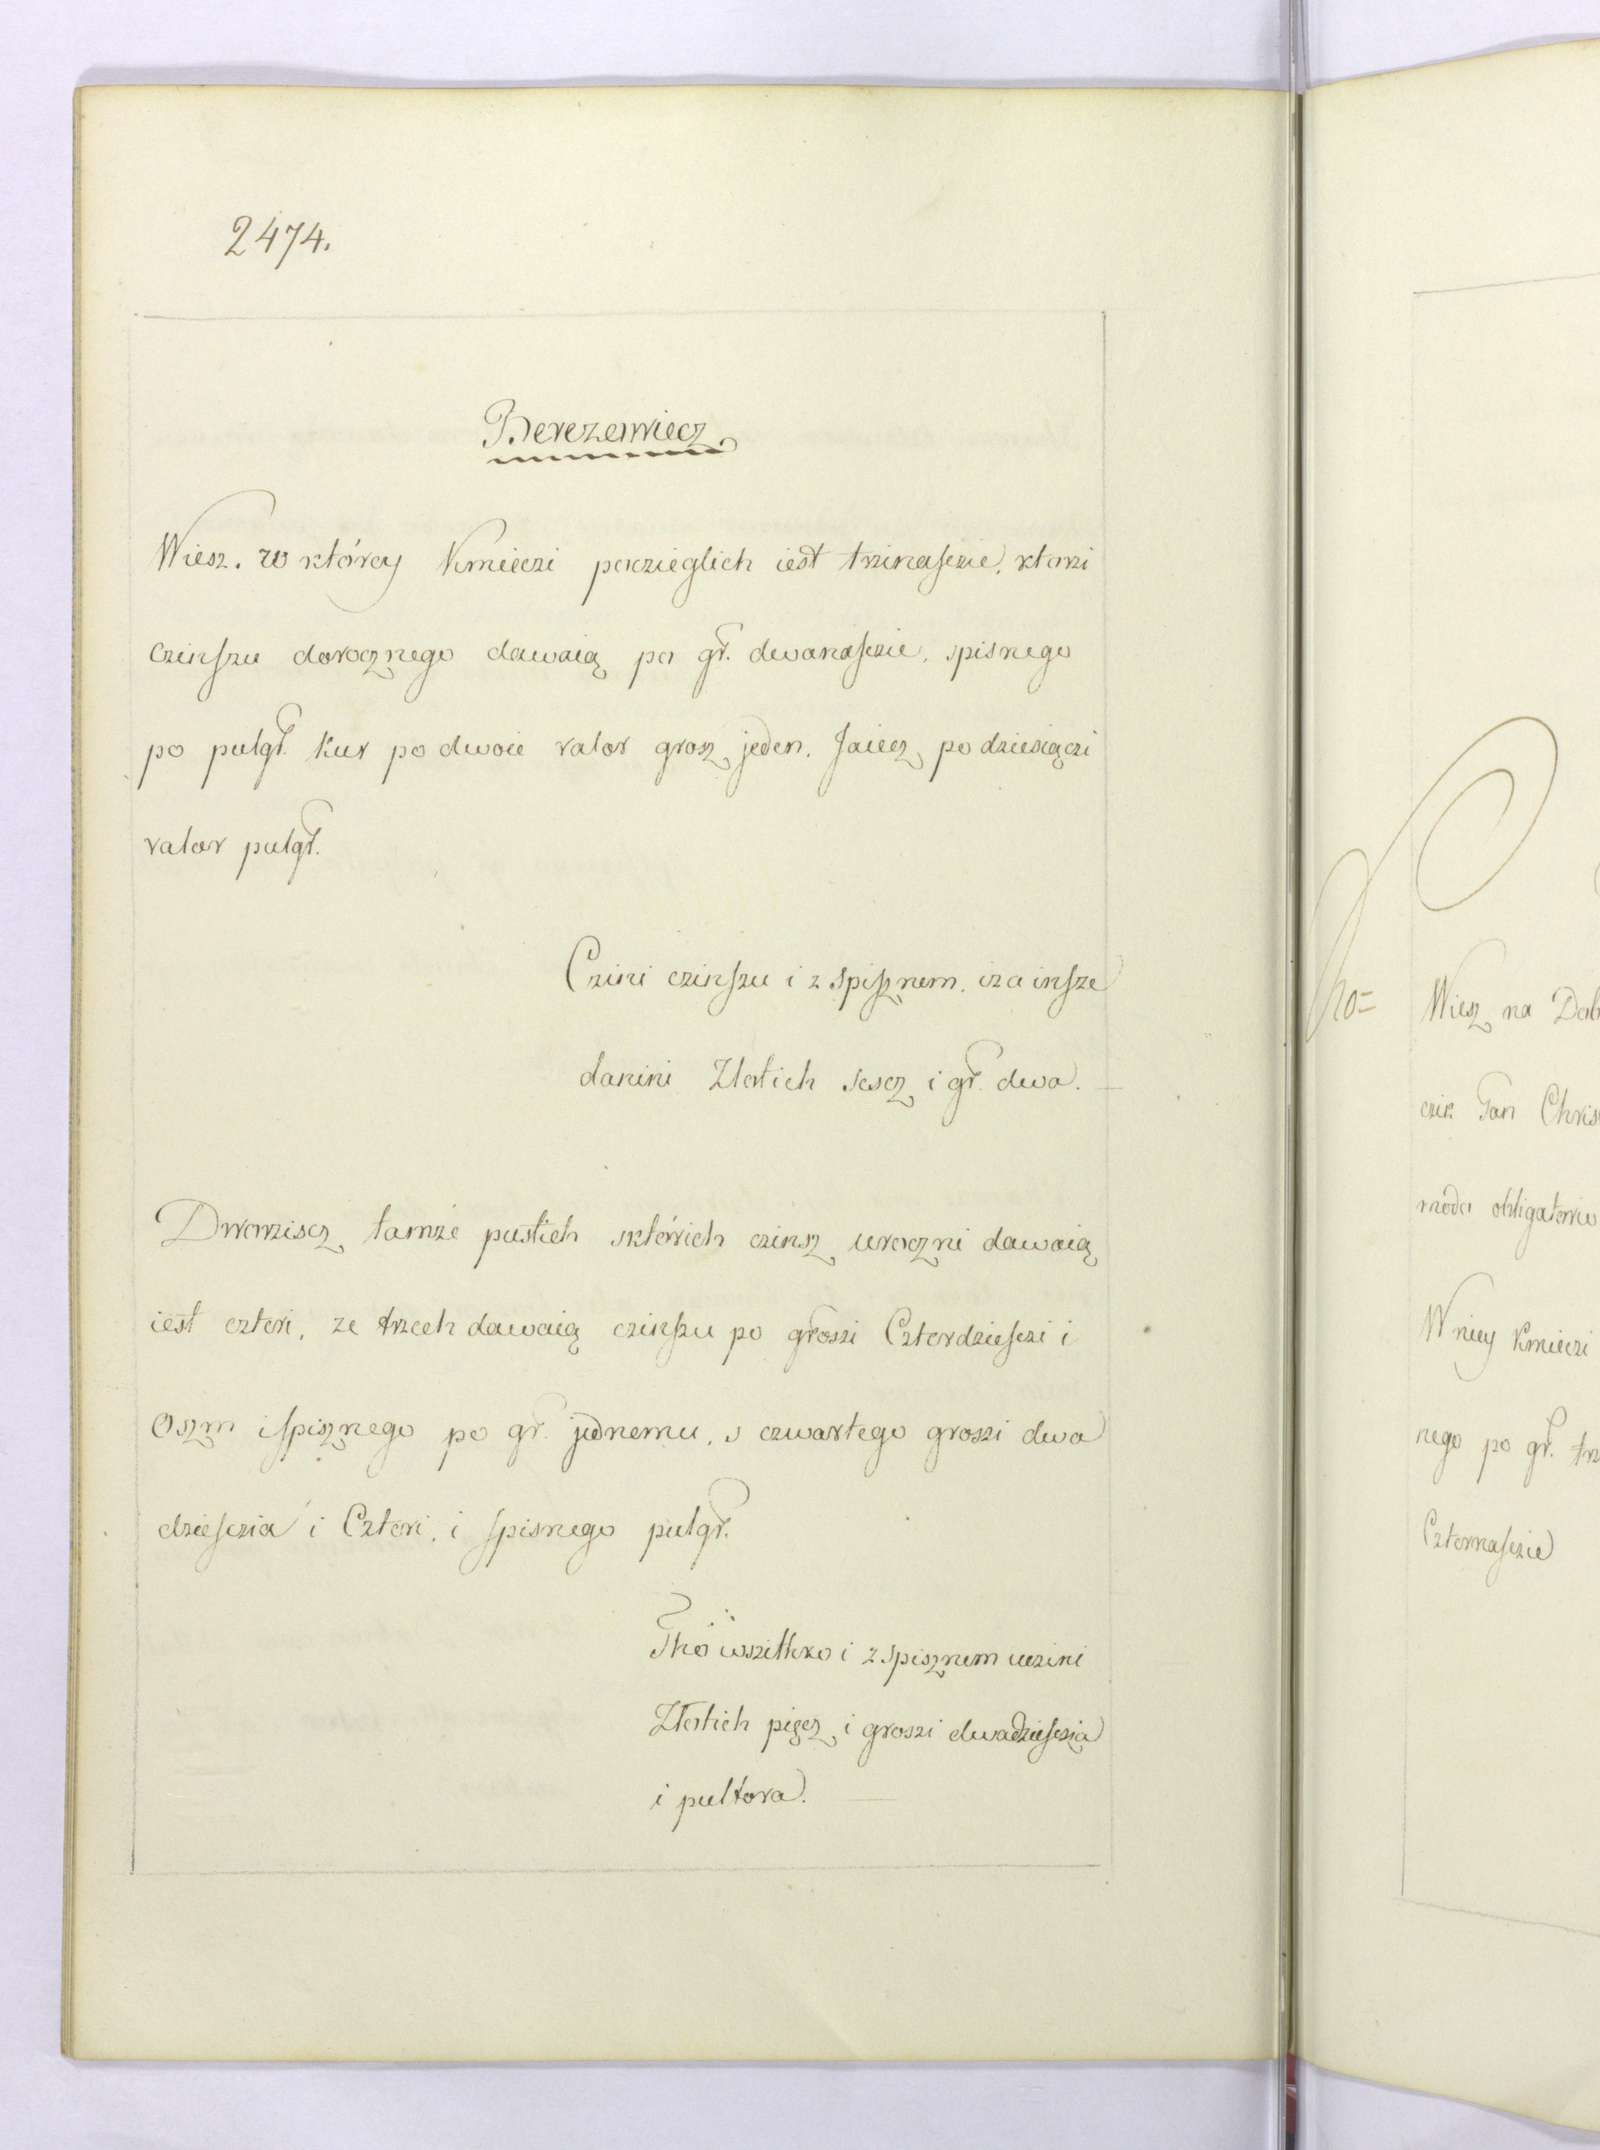 2474.
Berezewiecz
Wiesz. w którey Kmieczi poczieglich iest trzinasczie, ktorzi
czinszu dorocznego dawaią po gr. dwanasczie, spisnego
po pulgr. Kur po dwoie valor grosz jeden. Jaiecz po dziesiączi
valor pulgr.
Czini czinszu i z spisznem, i za insze
danini Zlotich sescz i gr. dwa.
Dworziscz tamże pustich sktórich czinsz uroczni dawaią
iest czteri, ze trzech dawaią czinszu po groszi Czterdziesczi i
Oszm i spisznego po gr. jednemu, s czwartego groszi dwa
dziesczia i Czteri, i spisnego pulgr.
Tho wszithko i z spisznem uczini
Zlotich pięcz i groszi dwadziesczia
i pultora.
no=
Wiesz na Dab
czik Pan Chris
moda obligatoriu
W niey Kmieczi
nego po gr. trz
Czternasczie